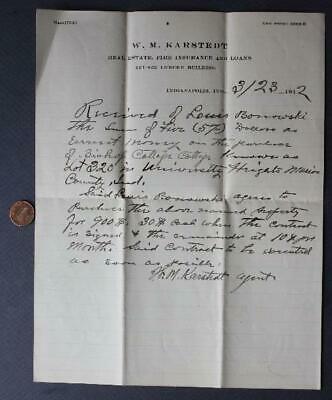 W. M. KARSTEDT
REAL ESTATE, FIRE INSURANCE AND LOANS
LEMCKE BUILDING
INDIANAPOLIS, IND. 3/23 1912
Received of Louis Borowski
the Sum of Five (5.00) Dollars as
Earnest Money on the purchase
of College Cottage Known as
Lot 220 in University Heights Marion
County Ind.
Said Louis Borowski agrees to
Purchase the above named property
for 900 $. 30 $ Cash When the Contract
is signed & the remainder at 10 $ per
Month. Said Contract to be executed
as soon as possible.
Wm. M. Karstedt agent